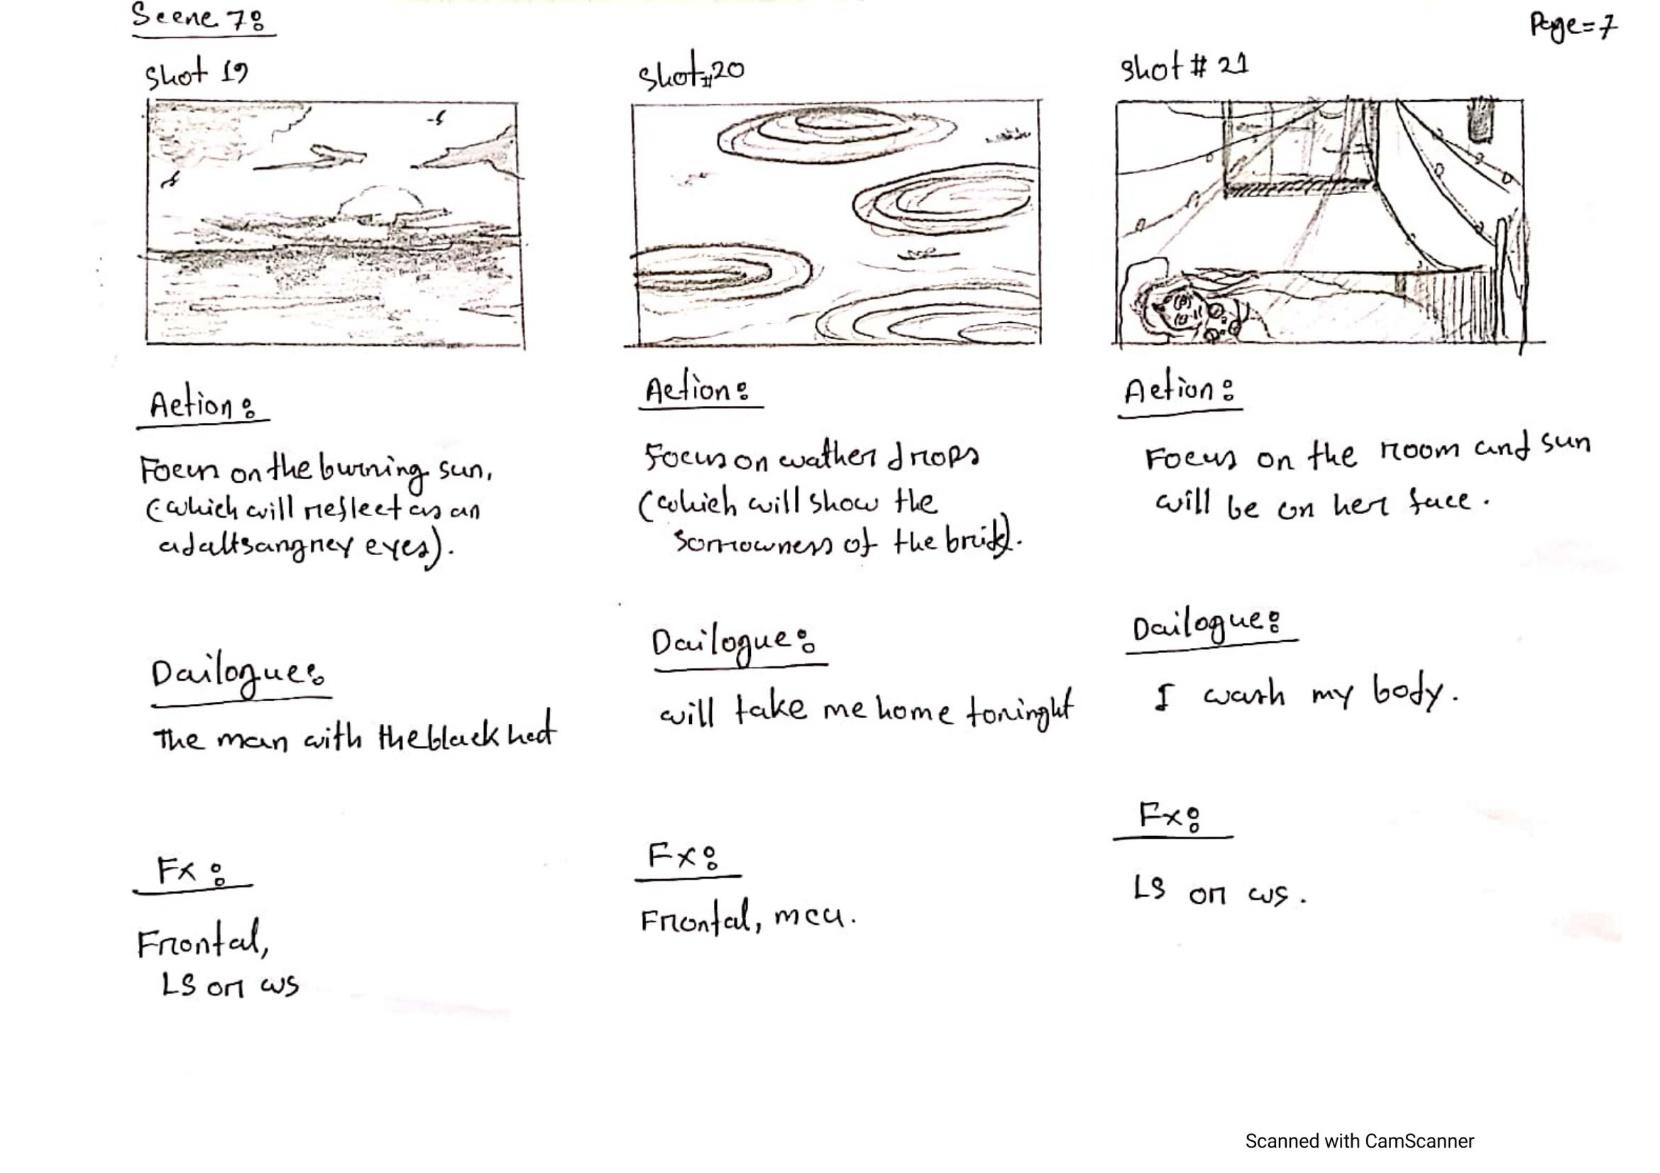 Scene 7:
Page=7
Shot 19
Shot#20
Shot # 21
Action:
Focus on the burning sun,
(which will reflect as an
adaltsangrey eyes).
Dailogue:
The man with the black hat
Fx:
Frontal,
LS or WS
Action:
Focus on wather drops
(which will show the
sorrowness of the bride).
Dailogue:
will take me home toninght
Fx:
Frontal, mcu.
Action:
Focus on the room and sun
will be on her face.
Dailogue:
I wash my body.
Fx:
LS or ws.
Scanned with CamScanner